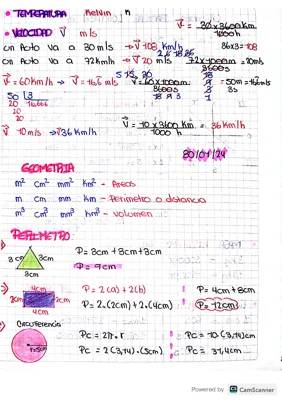 • TEMPERATURA Kelvin K
• VELOCIDAD V⃗ m/s
V⃗ = 30 x 3600 Km / 1000 h
un Auto va a 30 m/s → V⃗ 108 Km/h 36x3=108
un Auto va a 72 Km/h → V⃗ 20 m/s 72 x 1000 m / 3600 s = 20 m/s
V⃗ = 60 Km/h → V⃗ = 16,6 m/s V⃗ = 60 x 1000 m / 3600 s = 50 m / 3 s = 16,6 m/s
50 |3
20 16,666
20
20
V⃗ 10 m/s → 36 Km/h V⃗ = 10 x 3600 Km / 1000 h = 36 Km/h
30/01/24
GEOMETRIA
m² cm² mm² Km² - Areas
m cm mm Km - Perimetro o distancia
m³ cm³ mm³ Km³ - Volumen
PERIMETRO
3cm 3cm P = 3cm + 3cm + 3cm
3cm P = 9cm
4cm P = 2(a) + 2(b) P = 4cm + 8cm
2cm 2cm P = 2.(2cm) + 2.(4cm) P = 12cm
4cm
Circunferencia Pc = 2π.r Pc = 10.(3,14)cm
r=5cm Pc = 2(3,14).(5cm) Pc = 31,4cm
Powered by CS CamScanner